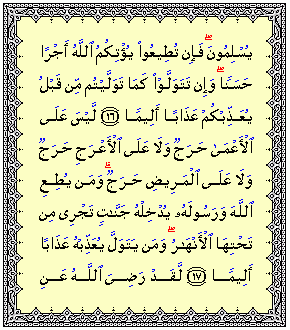 يُسْلِمُونَۖ فَإِن تُطِيعُوا۟ يُؤْتِكُمُ ٱللَّهُ أَجْرًا
حَسَنًاۖ وَإِن تَتَوَلَّوْا۟ كَمَا تَوَلَّيْتُم مِّن قَبْلُ
يُعَذِّبْكُمْ عَذَابًا أَلِيمًا ۝١٦ لَّيْسَ عَلَى
ٱلْأَعْمَىٰ حَرَجٌ وَلَا عَلَى ٱلْأَعْرَجِ حَرَجٌ
وَلَا عَلَى ٱلْمَرِيضِ حَرَجٌۗ وَمَن يُطِعِ
ٱللَّهَ وَرَسُولَهُۥ يُدْخِلْهُ جَنَّـٰتٍ تَجْرِى مِن
تَحْتِهَا ٱلْأَنْهَـٰرُۖ وَمَن يَتَوَلَّ يُعَذِّبْهُ عَذَابًا
أَلِيمًا ۝١٧ لَّقَدْ رَضِىَ ٱللَّهُ عَنِ